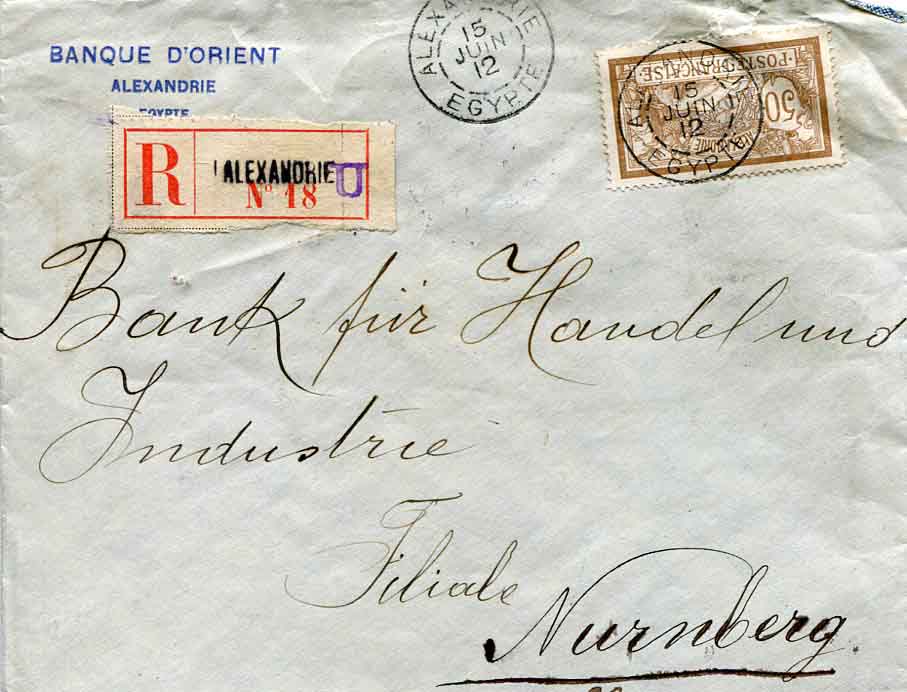 BANQUE D'ORIENT
ALEXANDRIE
EGYPTE
R
ALEXANDRIE
N° 18
U
ALEXANDRIE
15
JUIN
12
EGYPTE
POSTE FRANÇAISE
50
ALEXANDRIE
15
JUIN
12
EGYPTE
Bank für Handel und
Industrie
Filiale
Nurnberg.